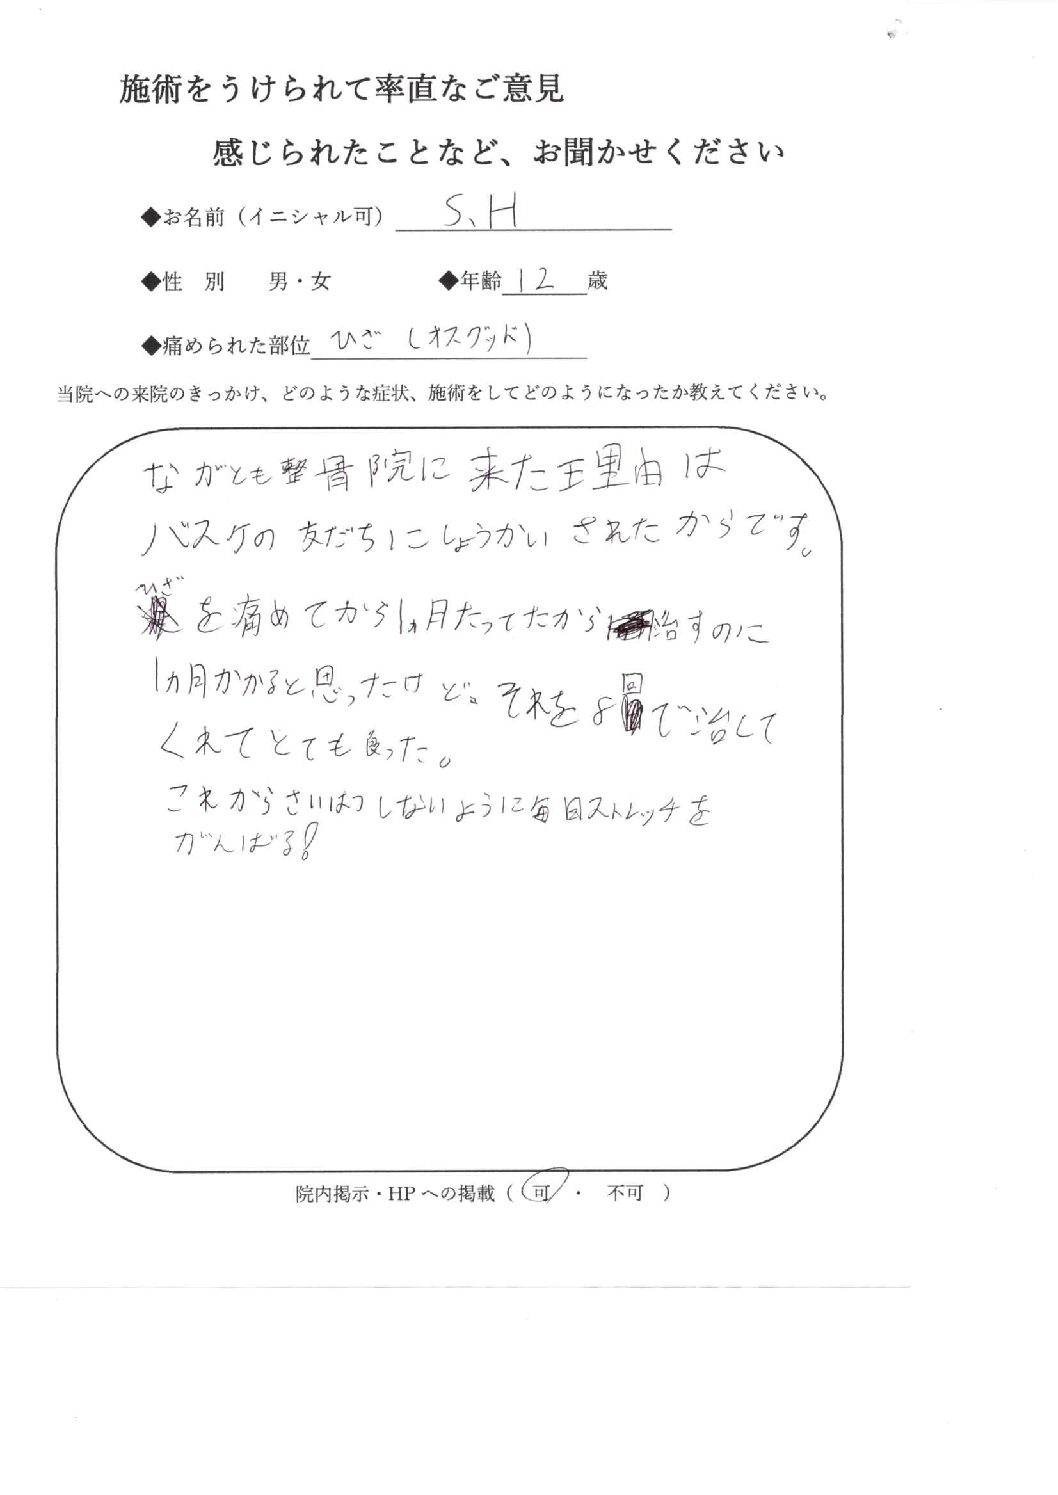 施術をうけられて率直なご意見
感じられたことなど、お聞かせください
◆お名前（イニシャル可） S、H
◆性 別 男・女 ◆年齢 12 歳
◆痛められた部位 ひざ（オスグッド）
当院への来院のきっかけ、どのような症状、施術をしてどのようになったか教えてください。
ながとも整骨院に来た理由は
バスケの友だちにしょうかいされたからです。
ひざを痛めてから1ヵ月たってたから治すのに
1ヵ月かかると思ったけど。それを8回で治して
くれてとても良った。
これからさいはつしないように毎日ストレッチを
がんばる!
院内掲示・HPへの掲載（ 可 ・ 不可 ）